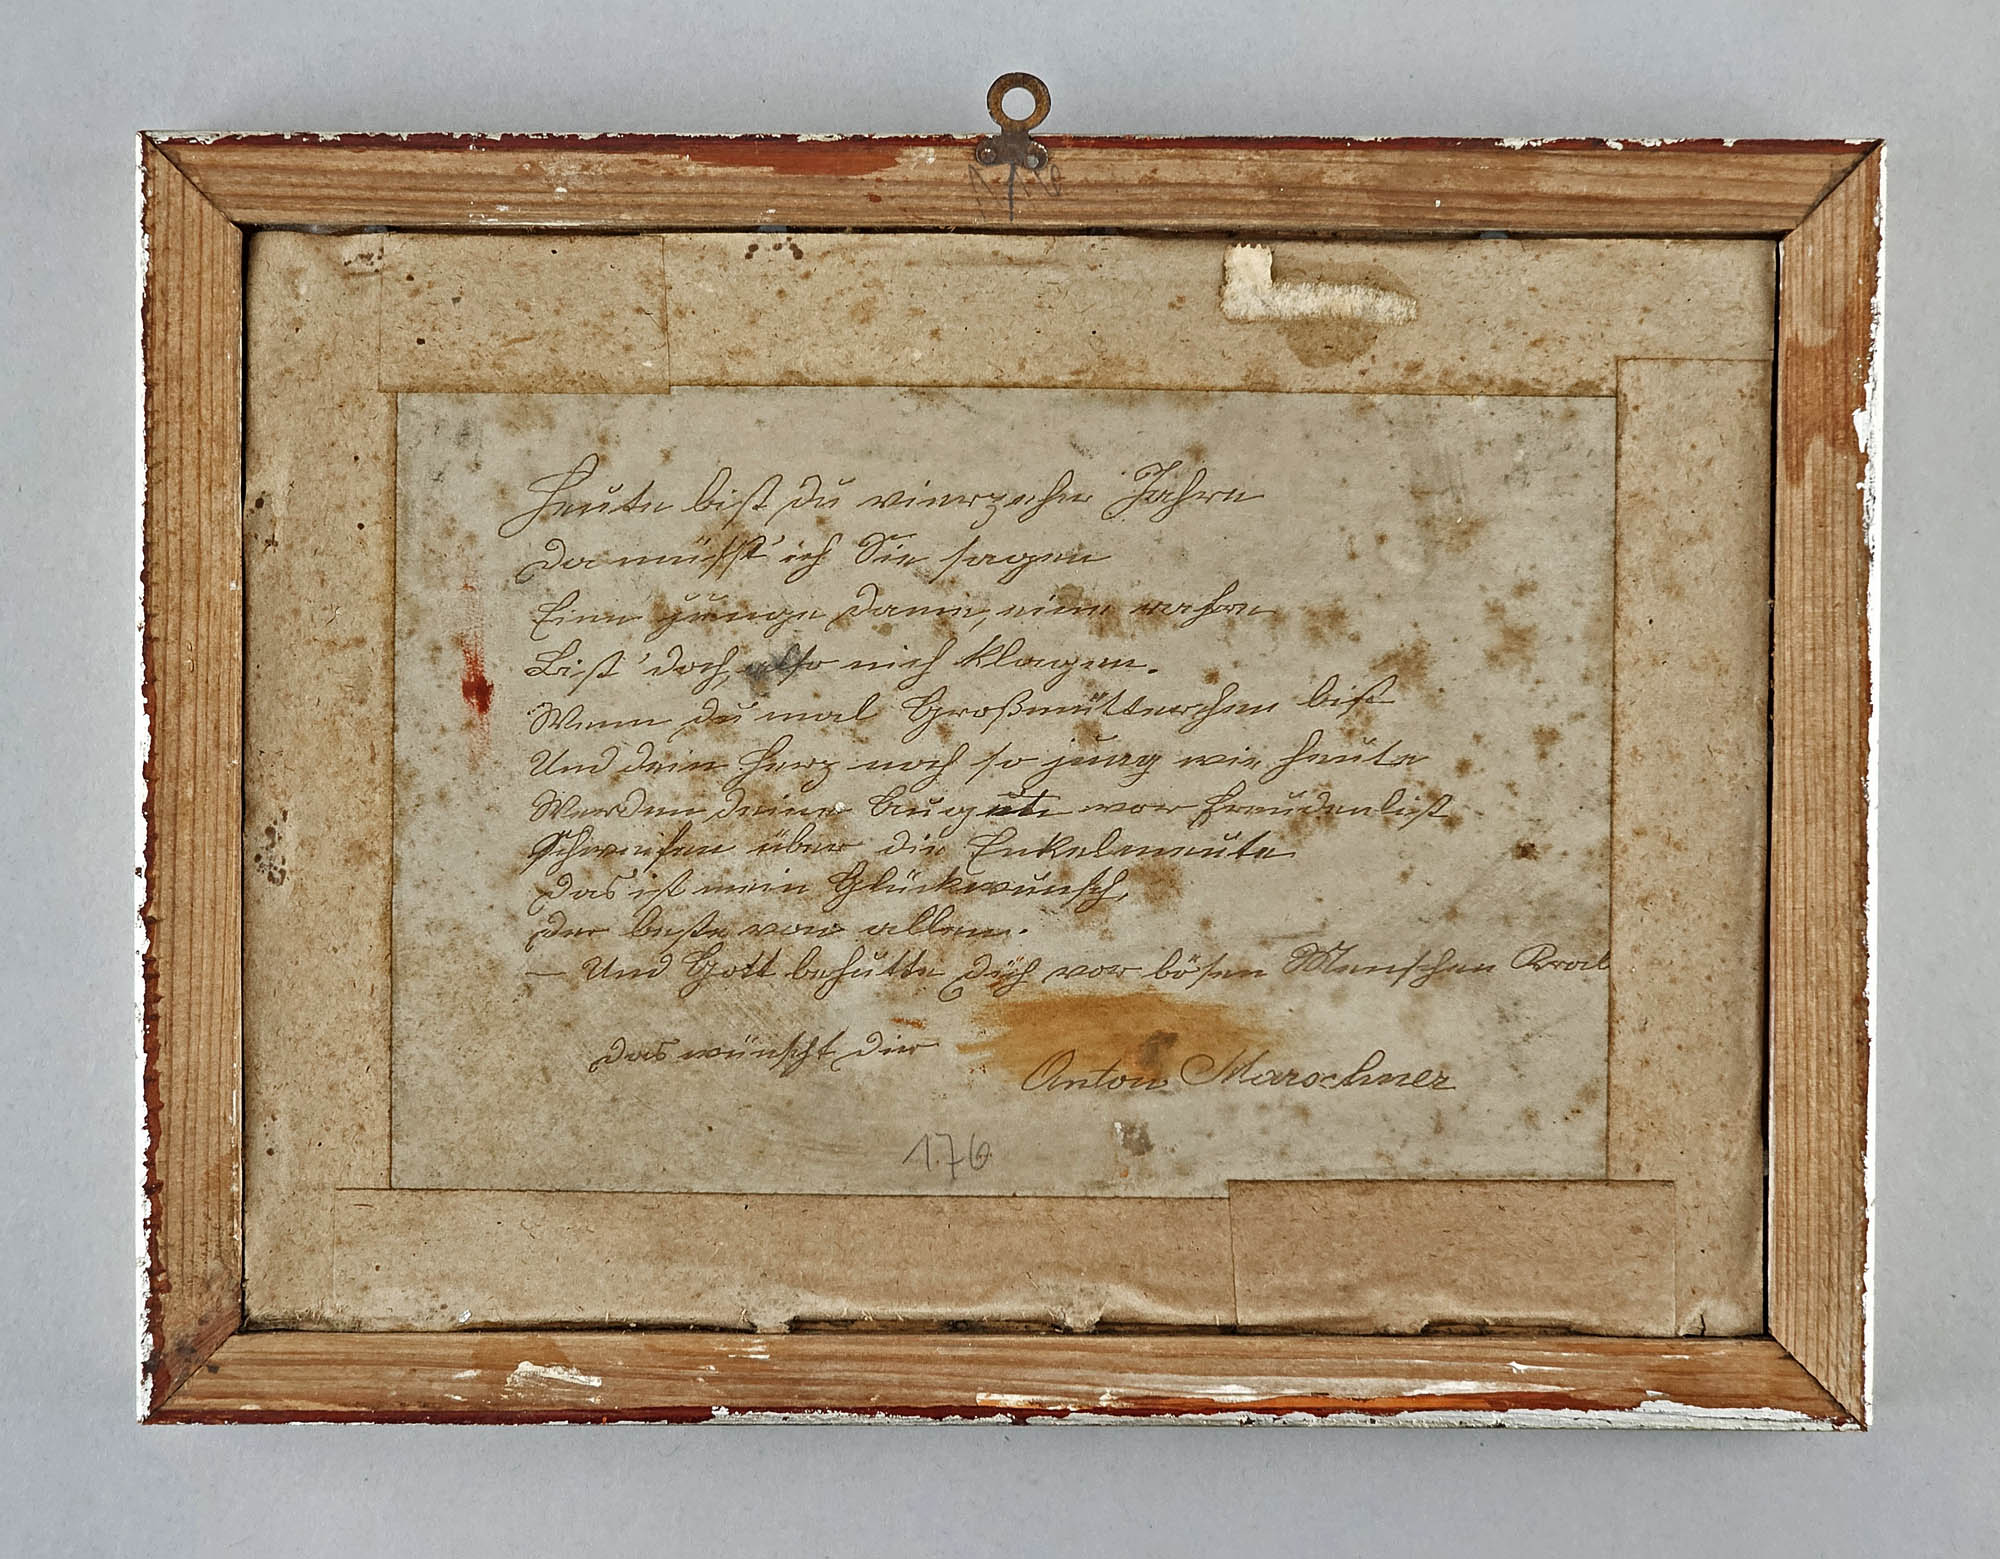 1.76
Heute bist du vierzehn Jahre
Da müsst' ich Sie sagen
Eine junge Dame, eine wahre
Bist' doch, also nich klagen.
Wenn du mal Großmütterchen bist
Und dein Herz noch so jung wie heute
Werden deine vor Freudenlist
Schweifen über die Enkelmeute
Das ist mein Glückwunsch,
Der beste von allen.
— Und Gott behütte dich vor bösen Menschen
Das wünscht dir
Anton Marschner
1.76